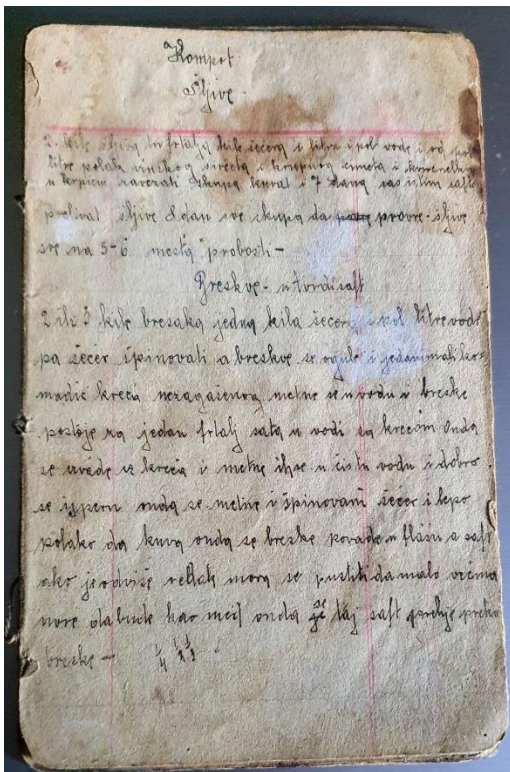 Kompot
Šljive
2 kile šljiva tri frtalja kile šećera i litra i pol vode i od pol
litre polak vinskog sirćeta i krupnog cimeta i
u krpicu zavezati skupa kuvat i 7 dana sas istim saft
prelivat šljive 8 dan sve skupa da provre - šljive
sve na 5-6 mesta probosti -
Breskve - u tvrdi saft
2 ili 3 kile bresaka jedna kila šećera i pol litre vode
pa šećer špinovati a breskve se ogule i jedan mali ko-
madić kreća nezagašenog metne se u vodu i breske
postoje za jedan frtalj sata u vodi sa krećom onda
se izvade iz kreća i metne ih se u čistu vodu i dobro
se isperu onda se metne i špinovani šećer i lepo
polako da kuva onda se breske povade u flašu a saft
ako je odviše redak mora se pustiti da malo većma
uvre da bude kao med onda se taj saft prelije preko
breske -